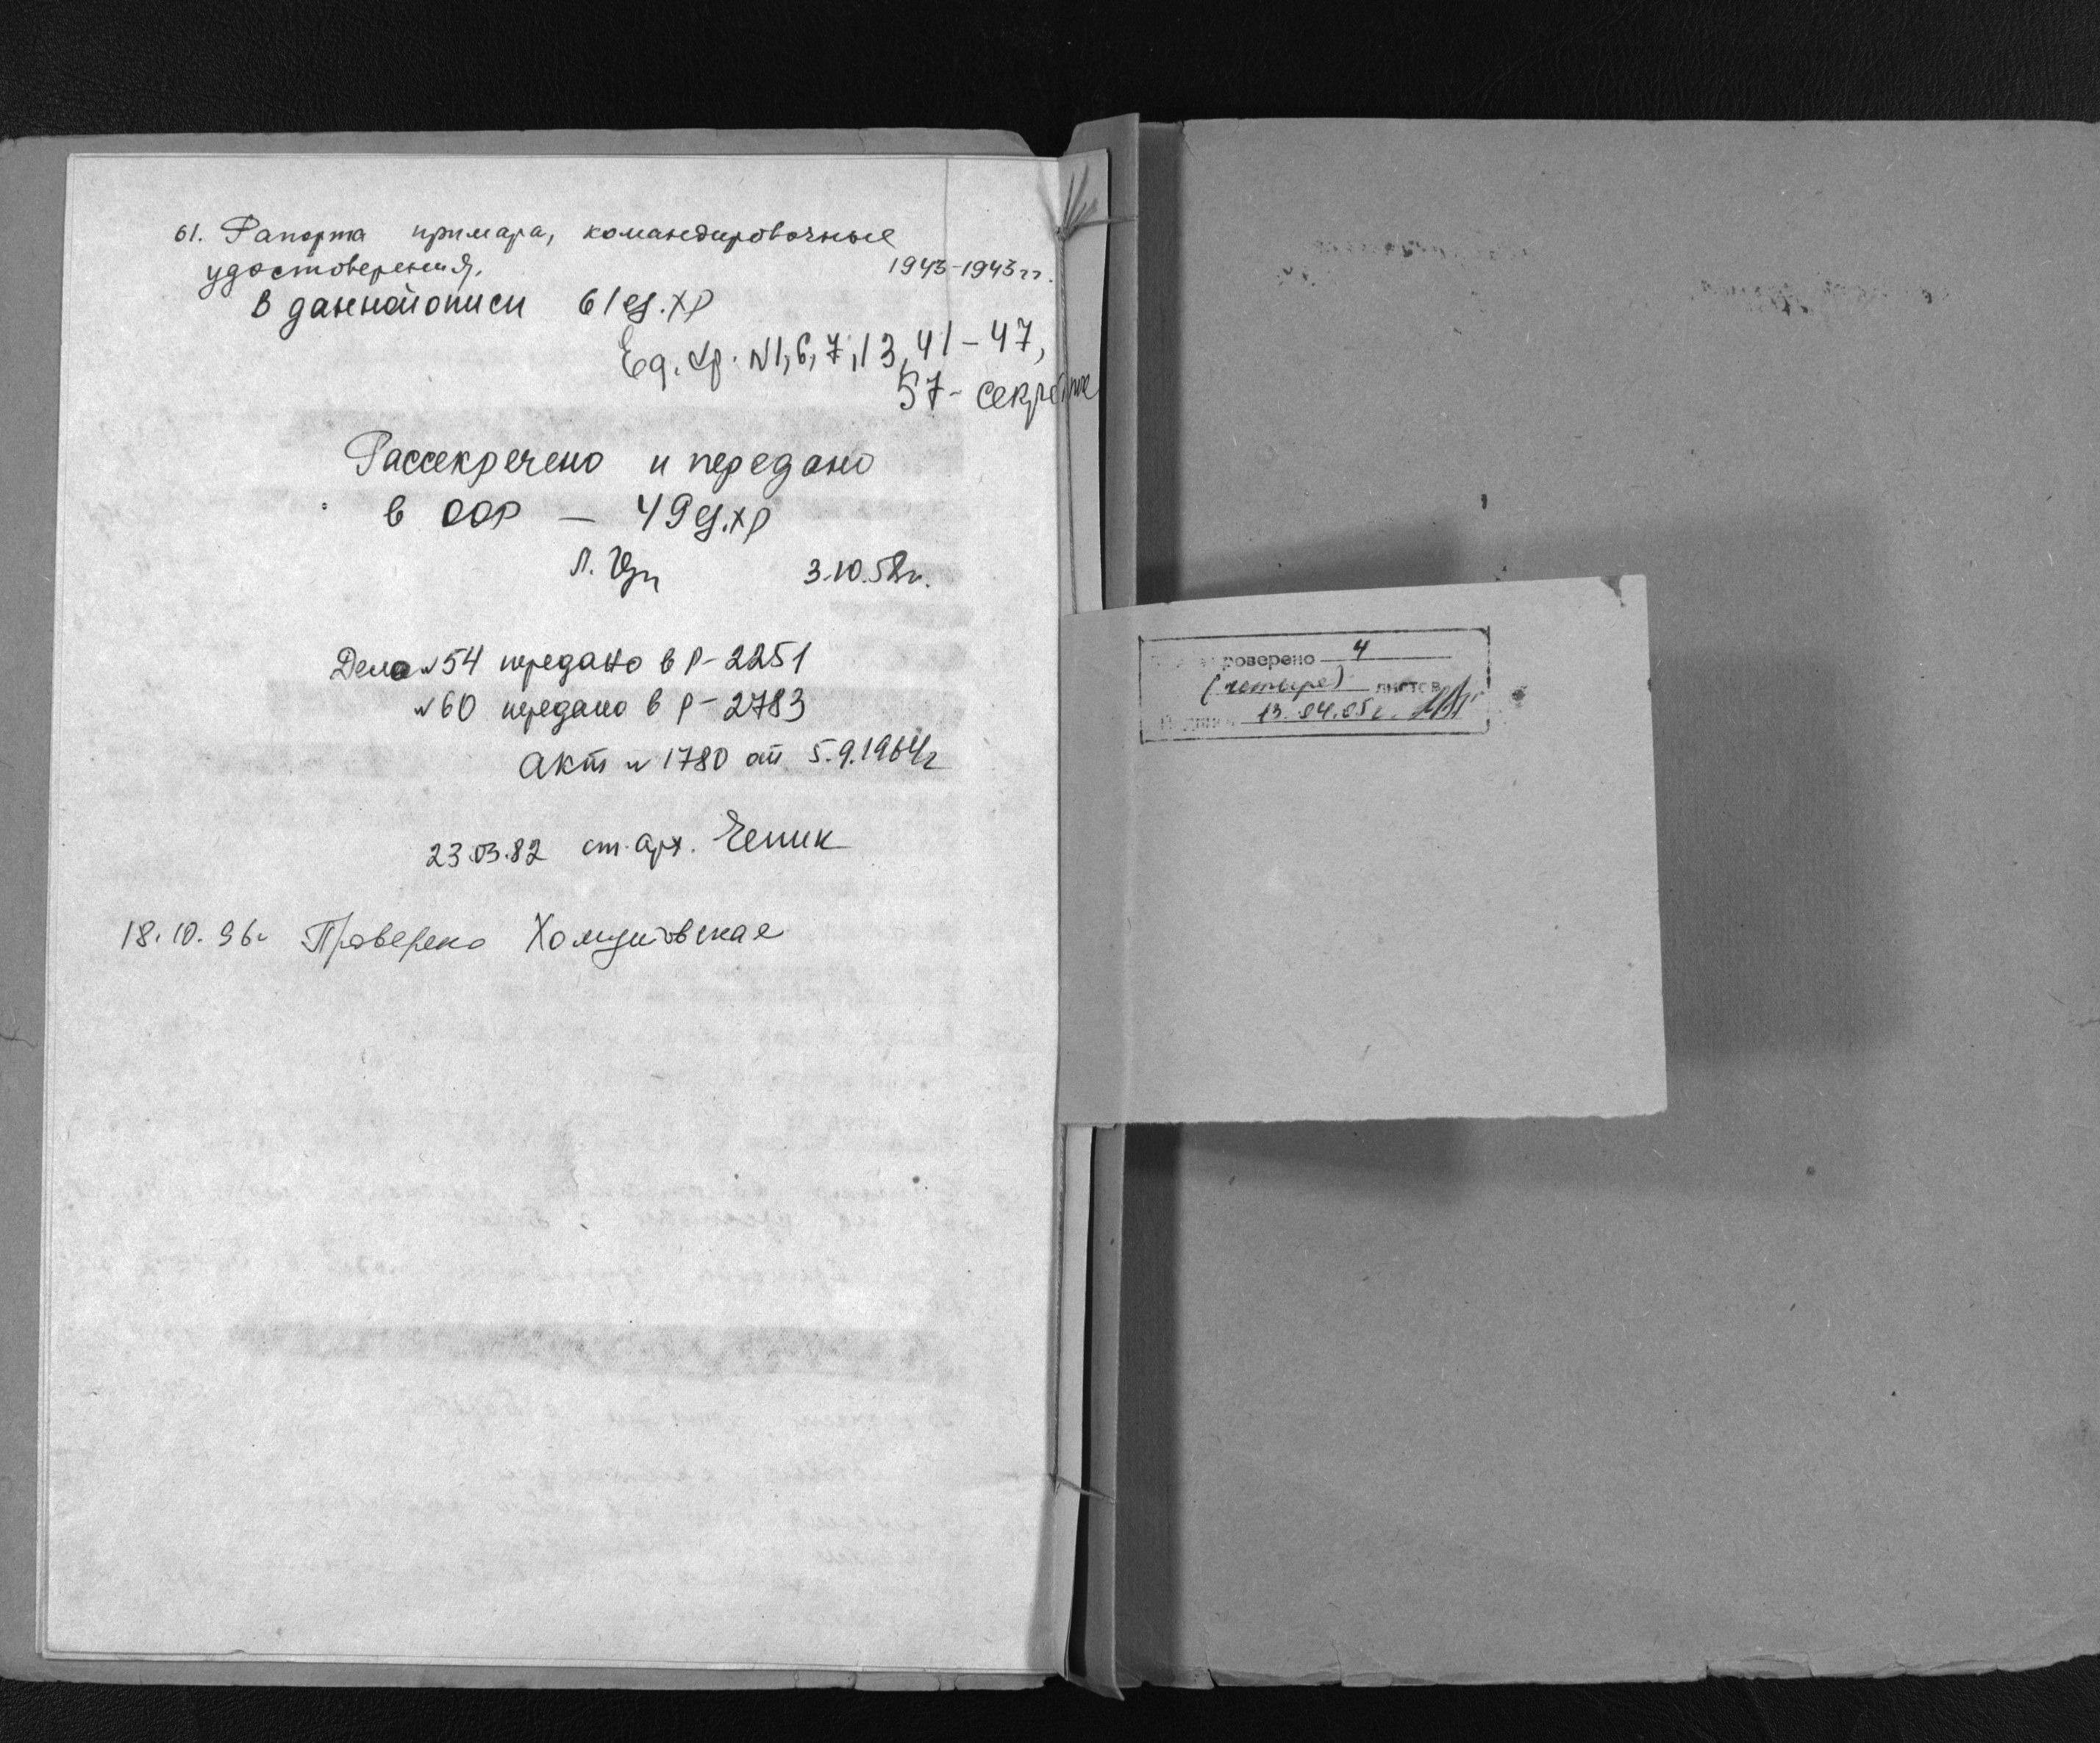 61. Рапорта примара, командировочные
удостоверения. 1943-1943 гг.
В данной описи 61 ед. хр
Ед. хр. N 1, 6, 7, 13, 41-47,
57- секретные
Рассекречено и передано
в ООР — 49 ед. хр
Л. 3.10.58г.
Дело N 54 передано в Р-2251
N 60 передано в Р-2783
акт N 1780 от 5.9.1964г
23.03.82 ст. арх. Чепик
18.10.96г Проверено
роверено 4
(четыре) листов
13.04.05г.